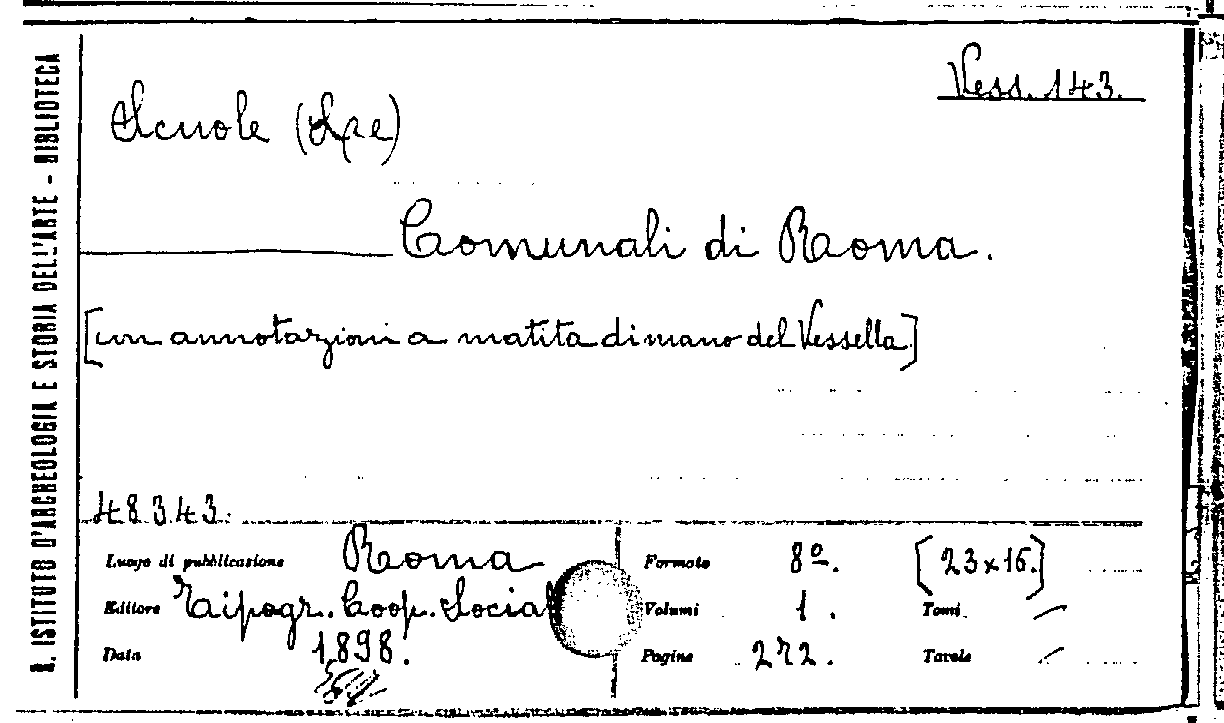 R. ISTITUTO D'ARCHEOLOGIA E STORIA DELL'ARTE - BIBLIOTECA
Vess. 143.
Scuole (Le)
Comunali di Roma.
[con annotazioni a matita di mano del Vessella]
48343.
Luogo di pubblicazione Roma
Formato 8º. [23x16.]
Editore Tipogr. Coop. Social
Volumi 1. Tomi
Data 1898.
Pagine 272. Tavole